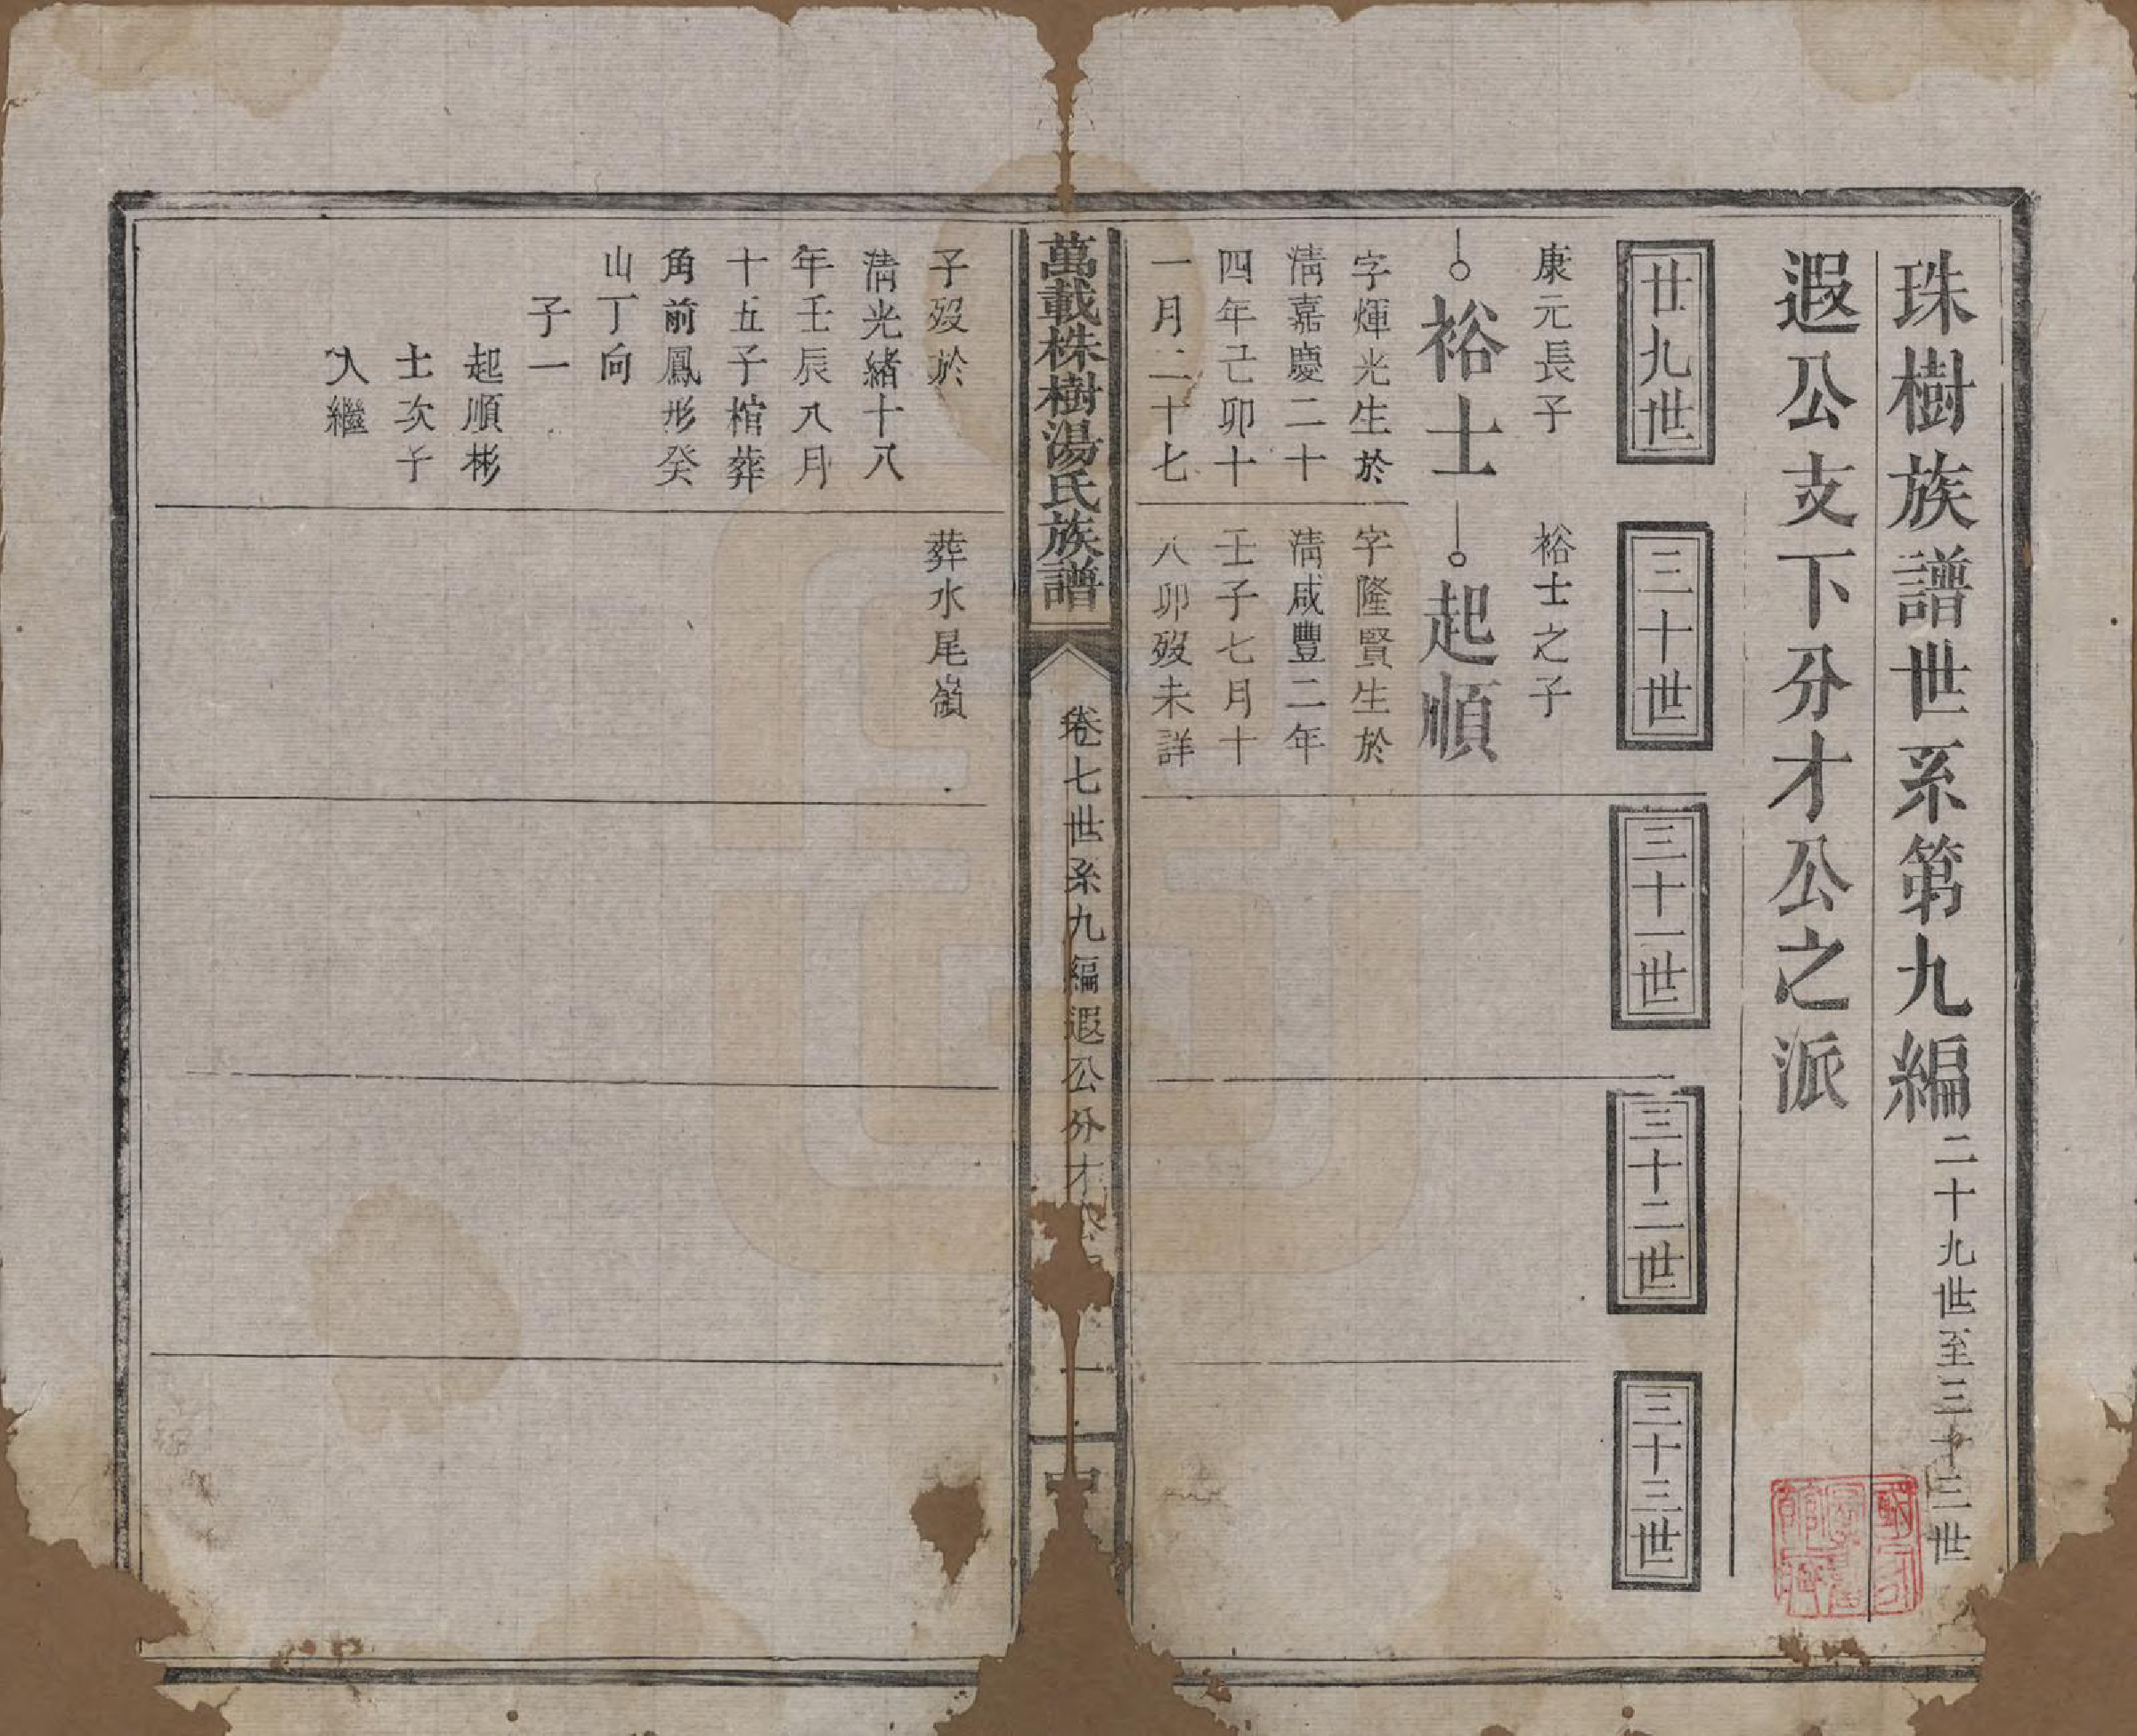 珠樹族譜世系第九編二十九世至三十三世
遐公支下分才公之派
廿九世
三十世
三十一世
三十二世
三十三世
康元長子
裕士
字煇光生於
清嘉慶二十
四年己卯十
一月二十七
裕士之子
起順
字隆賢生於
清咸豐二年
壬子七月十
八卯歿未詳
萬載株樹湯氏族譜
卷七世系九編遐公分才
一
子歿於
清光緒十八
年壬辰八月
十五子棺葬
角前鳳形癸
山丁向
子一
起順彬
士次子
入繼
葬水尾嶺